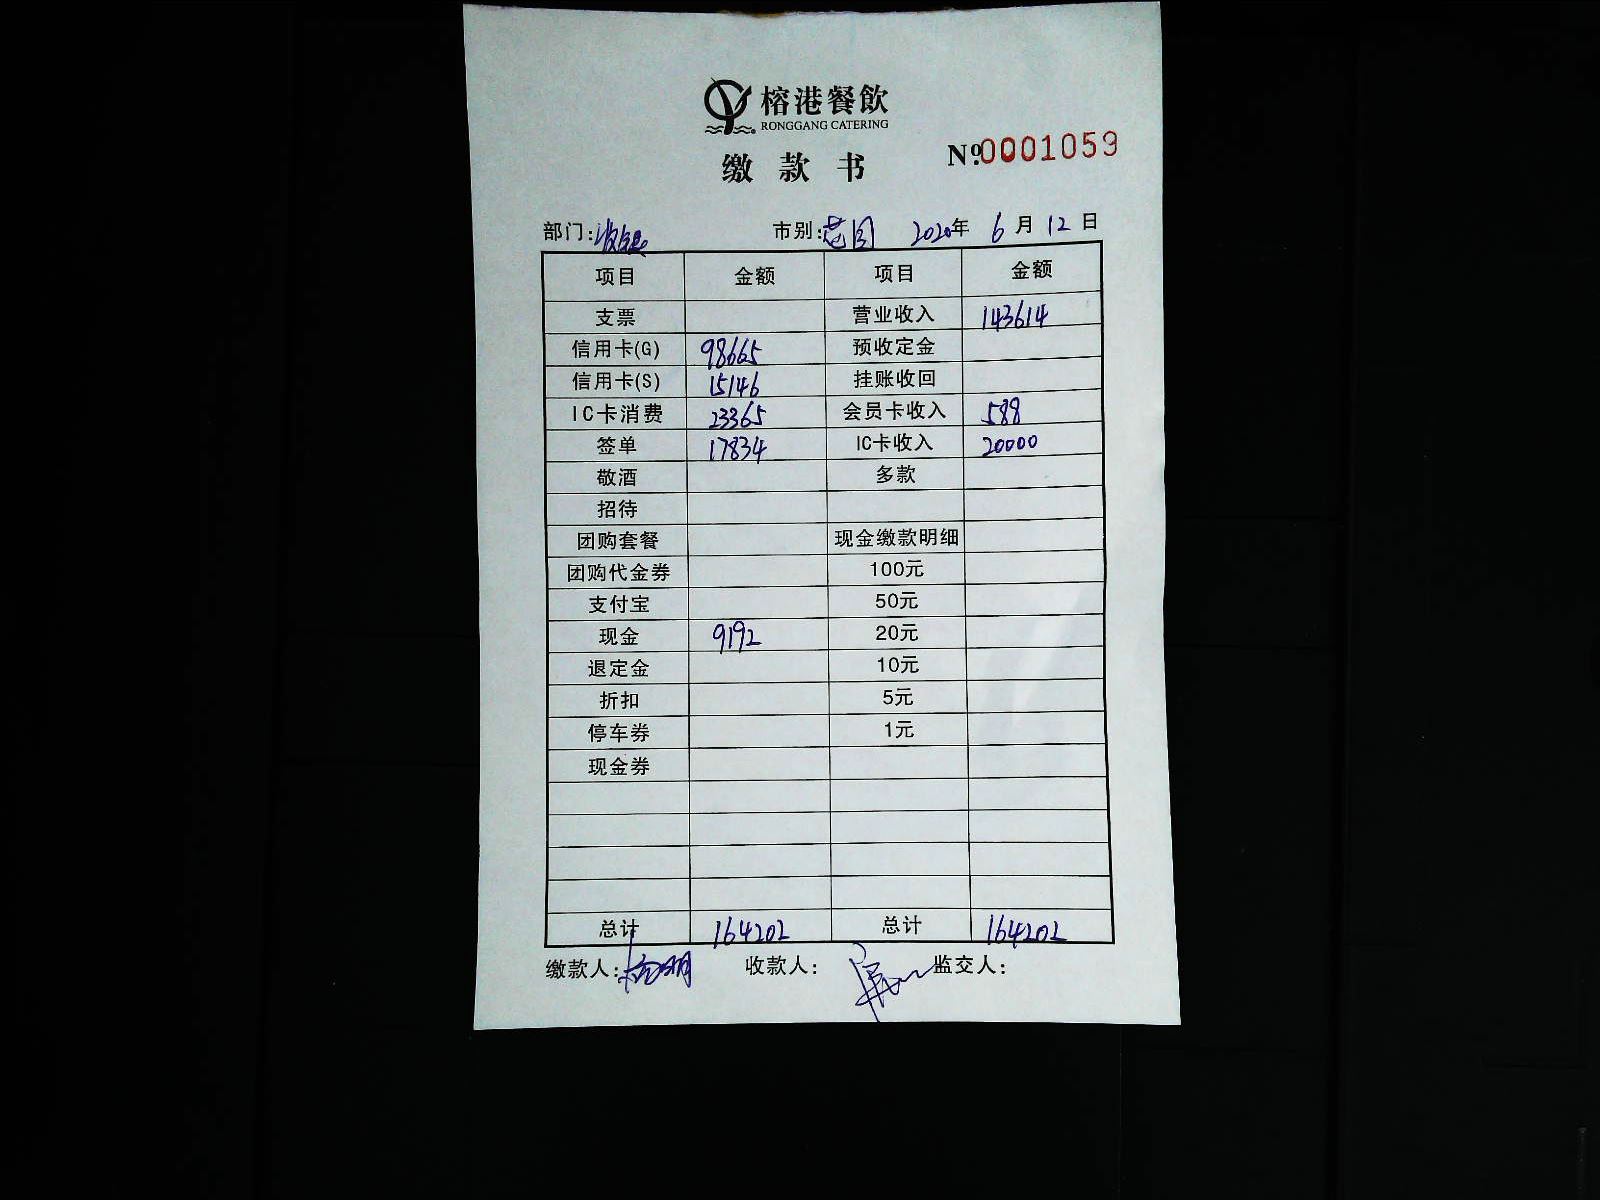 榕港餐飲
RONGGANG CATERING
缴款书 Nº.0001059
部门:收银 市别:花园 2020年 6月 12日
项目 金额 项目 金额
支票 营业收入 143614
信用卡(G) 98665 预收定金
信用卡(S) 15146 挂账收回
IC卡消费 23365 会员卡收入 588
签单 17834 IC卡收入 20000
敬酒 多款
招待
团购套餐 现金缴款明细
团购代金券 100元
支付宝 50元
现金 9192 20元
退定金 10元
折扣 5元
停车券 1元
现金券
总计 164202 总计 164202
缴款人: 收款人: 监交人: